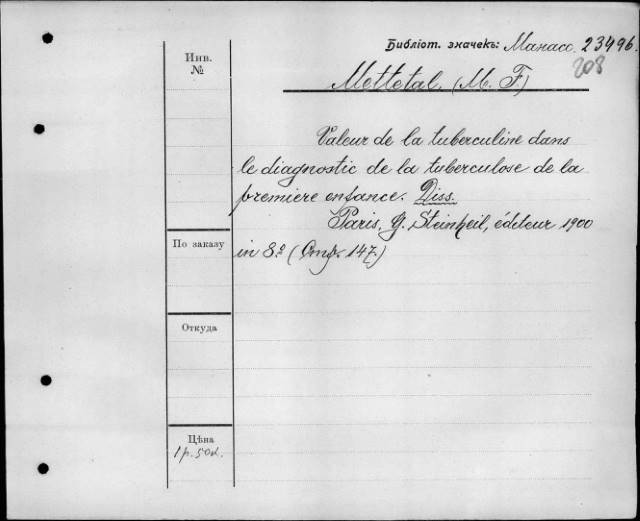 Библіот. значекъ: Манасс. 23496.
208
Инв.
№
Mettetal. (M. F.)
Valeur de la tuberculine dans
le diagnostic de la tuberculose de la
premiere enfance. Diss.
Paris, G. Steinheil, éditeur 1900
in 8.º (Стр. 147.)
По заказу
Откуда
Цѣна
1 р. 50 к.